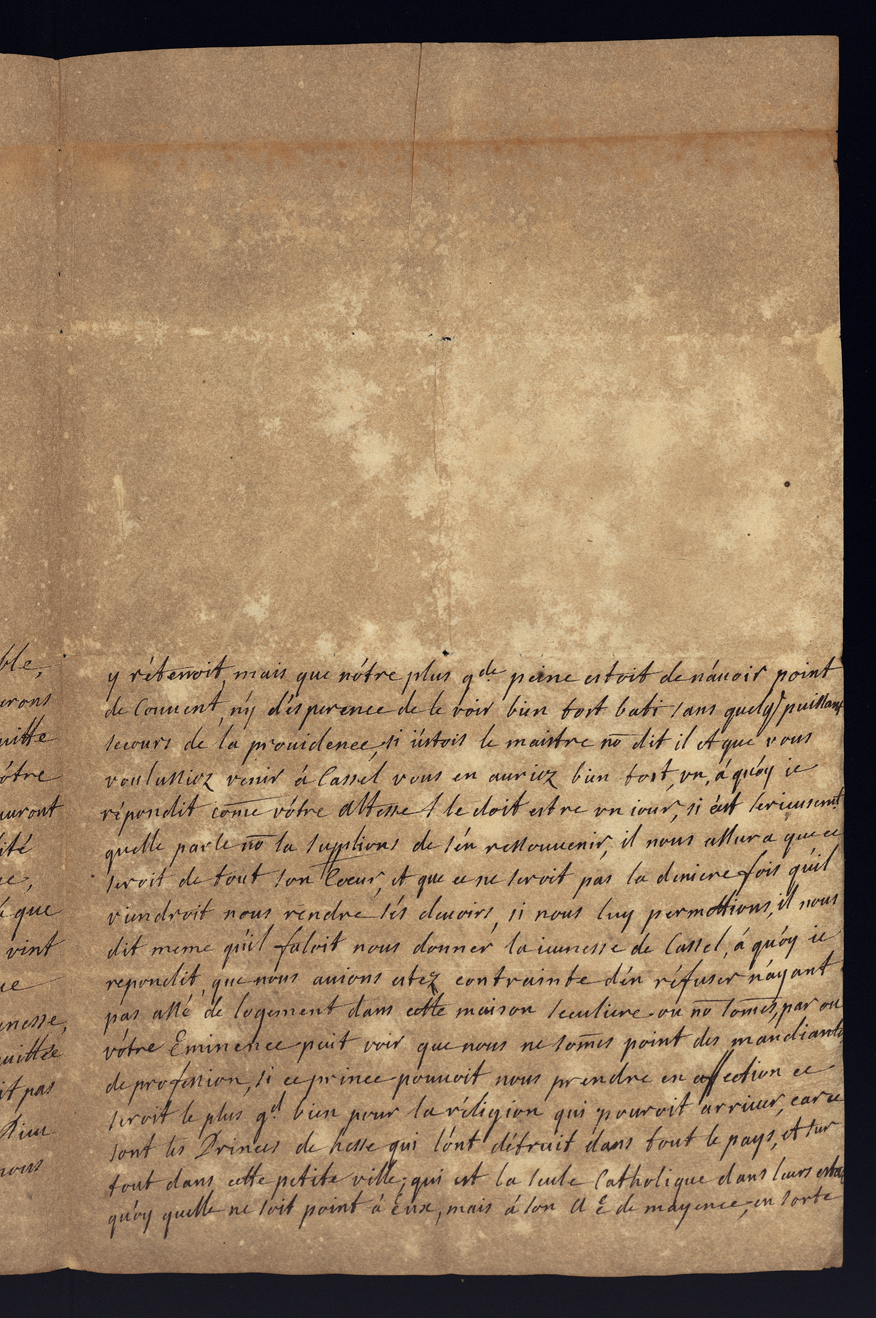 ble,
erons
uitte
ôtre
auront
ité
se,
é que
vint
ue
enesse,
uittée
it pas
Dieu
nous
y rétenoit, mais que nótre plus gde peine estoit de náuoir point
de Conuent, ny d'ésperence de le voir bien tost bati sans quelq puissant
secours de la prouidence, si i'éstois le maistre no dit il et que vous
voulussiez venir á Cassel vous en auriez bien tost, vn, á quóy ie
répondit come vótre Altesse le doit estre vn iour, si c'ést serieusemt
quelle parle no la supplions de s'én ressouuenir, il nous assura que ce
seroit de tout son Coeur, et que ce ne seroit pas la derniere fois qu'il
viendroit nous rendre sés deuoirs, si nous luy permettions, il nous
dit meme qu'il faloit nous donner la ieunesse de Cassel, á quóy ie
repondit, que nous auions estez contrainte d'én réfuser n'áyant
pas assé de logement dans cette maison seculiere ou no somes, par ou
vótre Eminence puit voir que nous ne somes point des mandiants
de profession, si ce prince pouuoit nous prendre en affection ce
seroit le plus gd bien pour la réligion qui pouroit arriuer, car ce
sont lés Princes de hesse qui l'ónt détruit dans tout le pays, et sur
tout dans cette petite ville, qui est la seule Catholique dans leurs estats
quóy quelle ne soit point á Eux, mais á son A E de mayence, en sorte